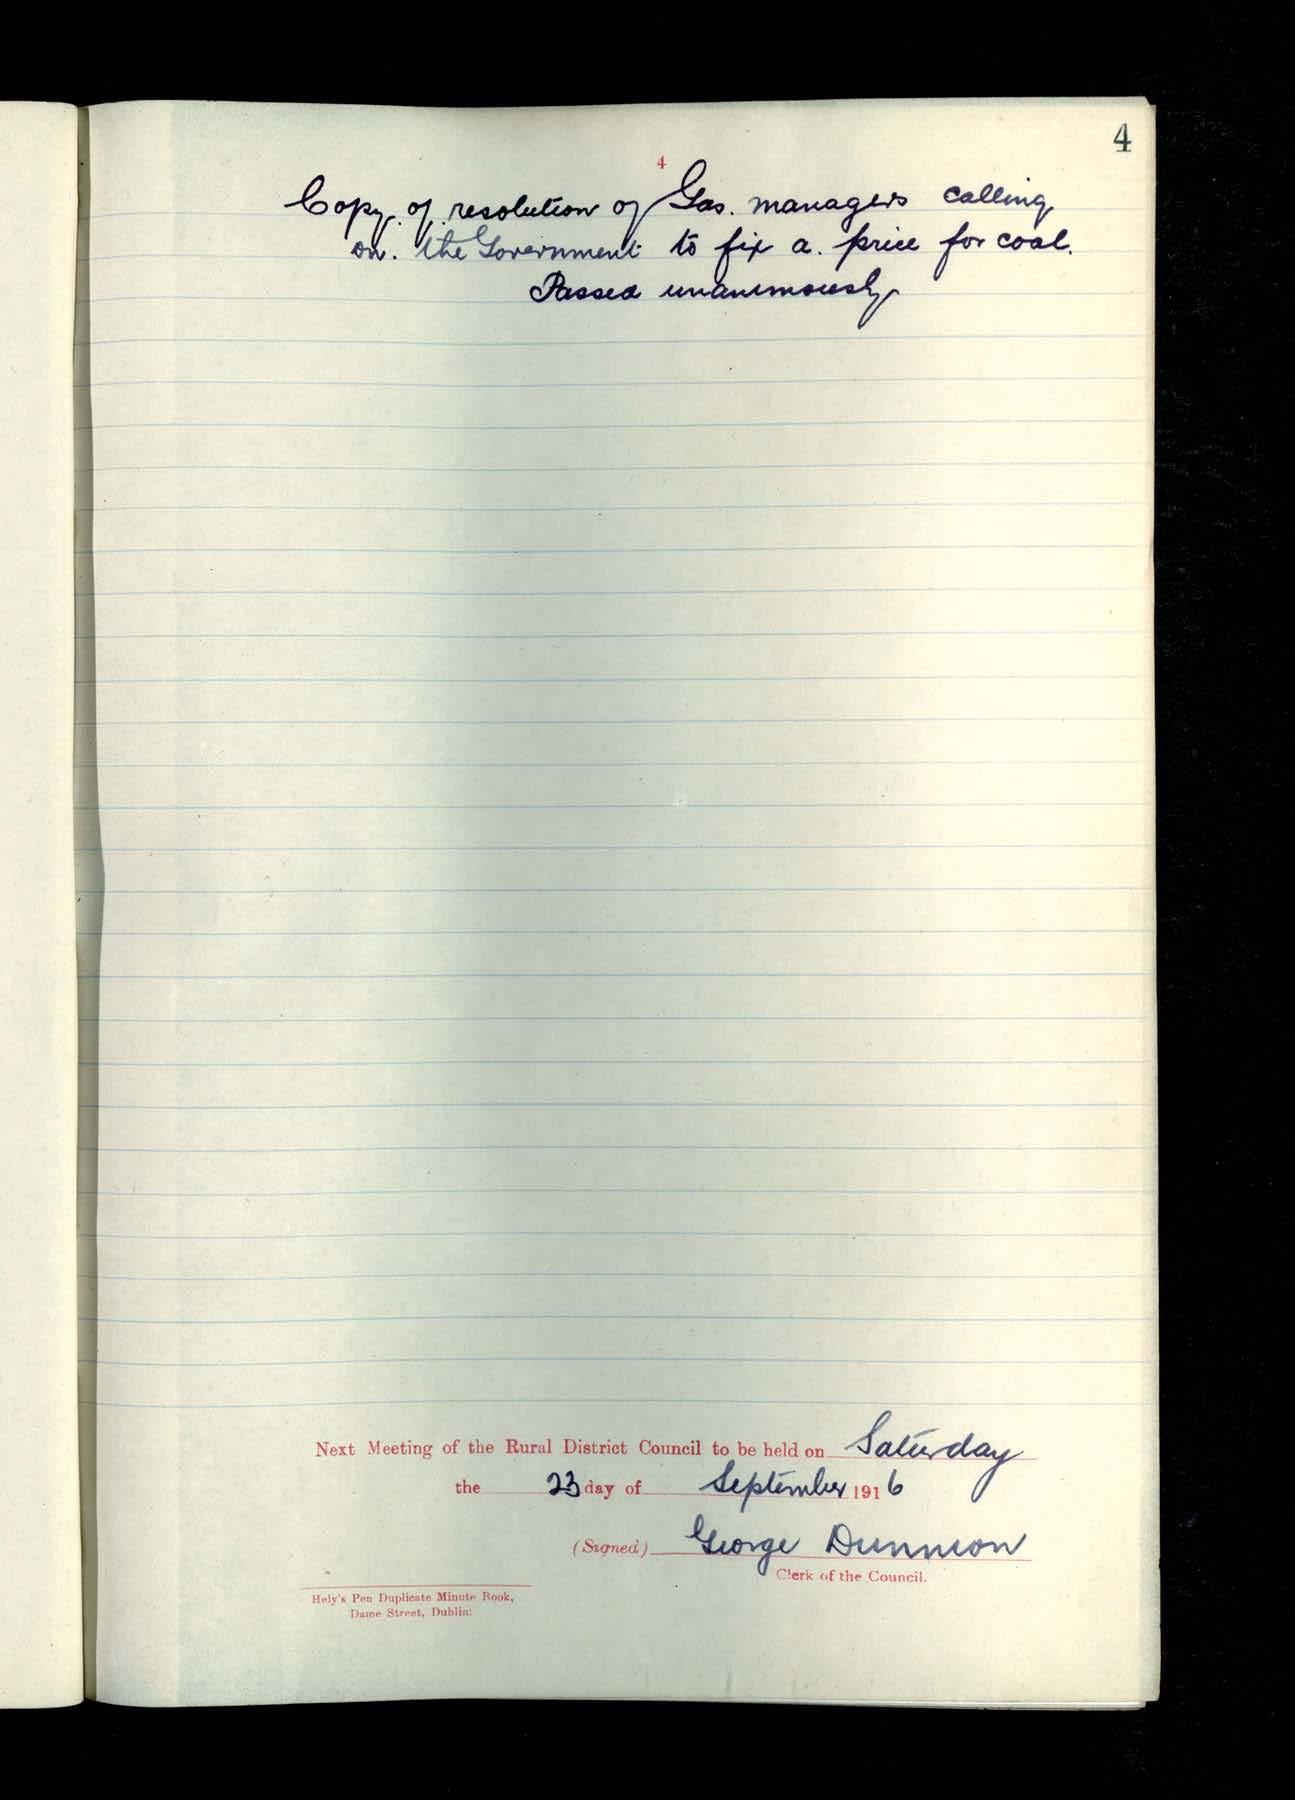 4
4
Copy of resolution of Gas. managers calling
on. the Government to fix a. price for coal.
Passed unanimously
Next Meeting of the Rural District Council to be held on Saturday
the 23 day of September 1916
(Signed) George Dunnion
Clerk of the Council.
Hely's Pen Duplicate Minute Book,
Dame Street, Dublin.